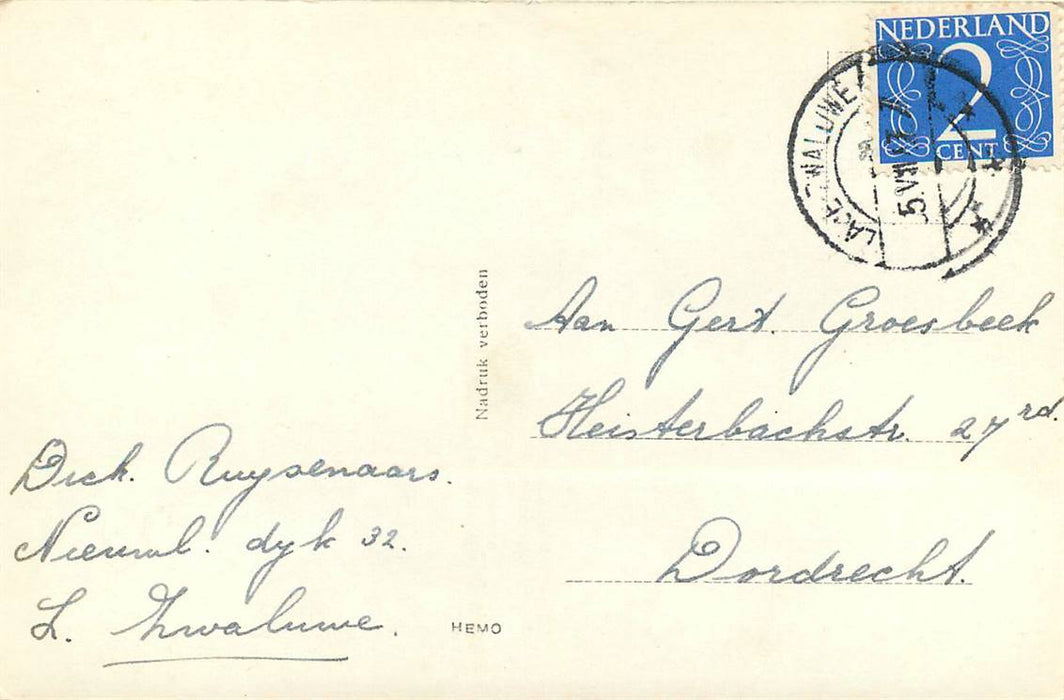 NEDERLAND
2
CENT
5 VIII
Nadruk verboden
Aan Gert. Groesbeek
Heisterbachstr. 27 rd.
Dordrecht.
Dick. Ruysenaars.
Nieuwl. dyk 32.
L. Zwaluwe.
HEMO